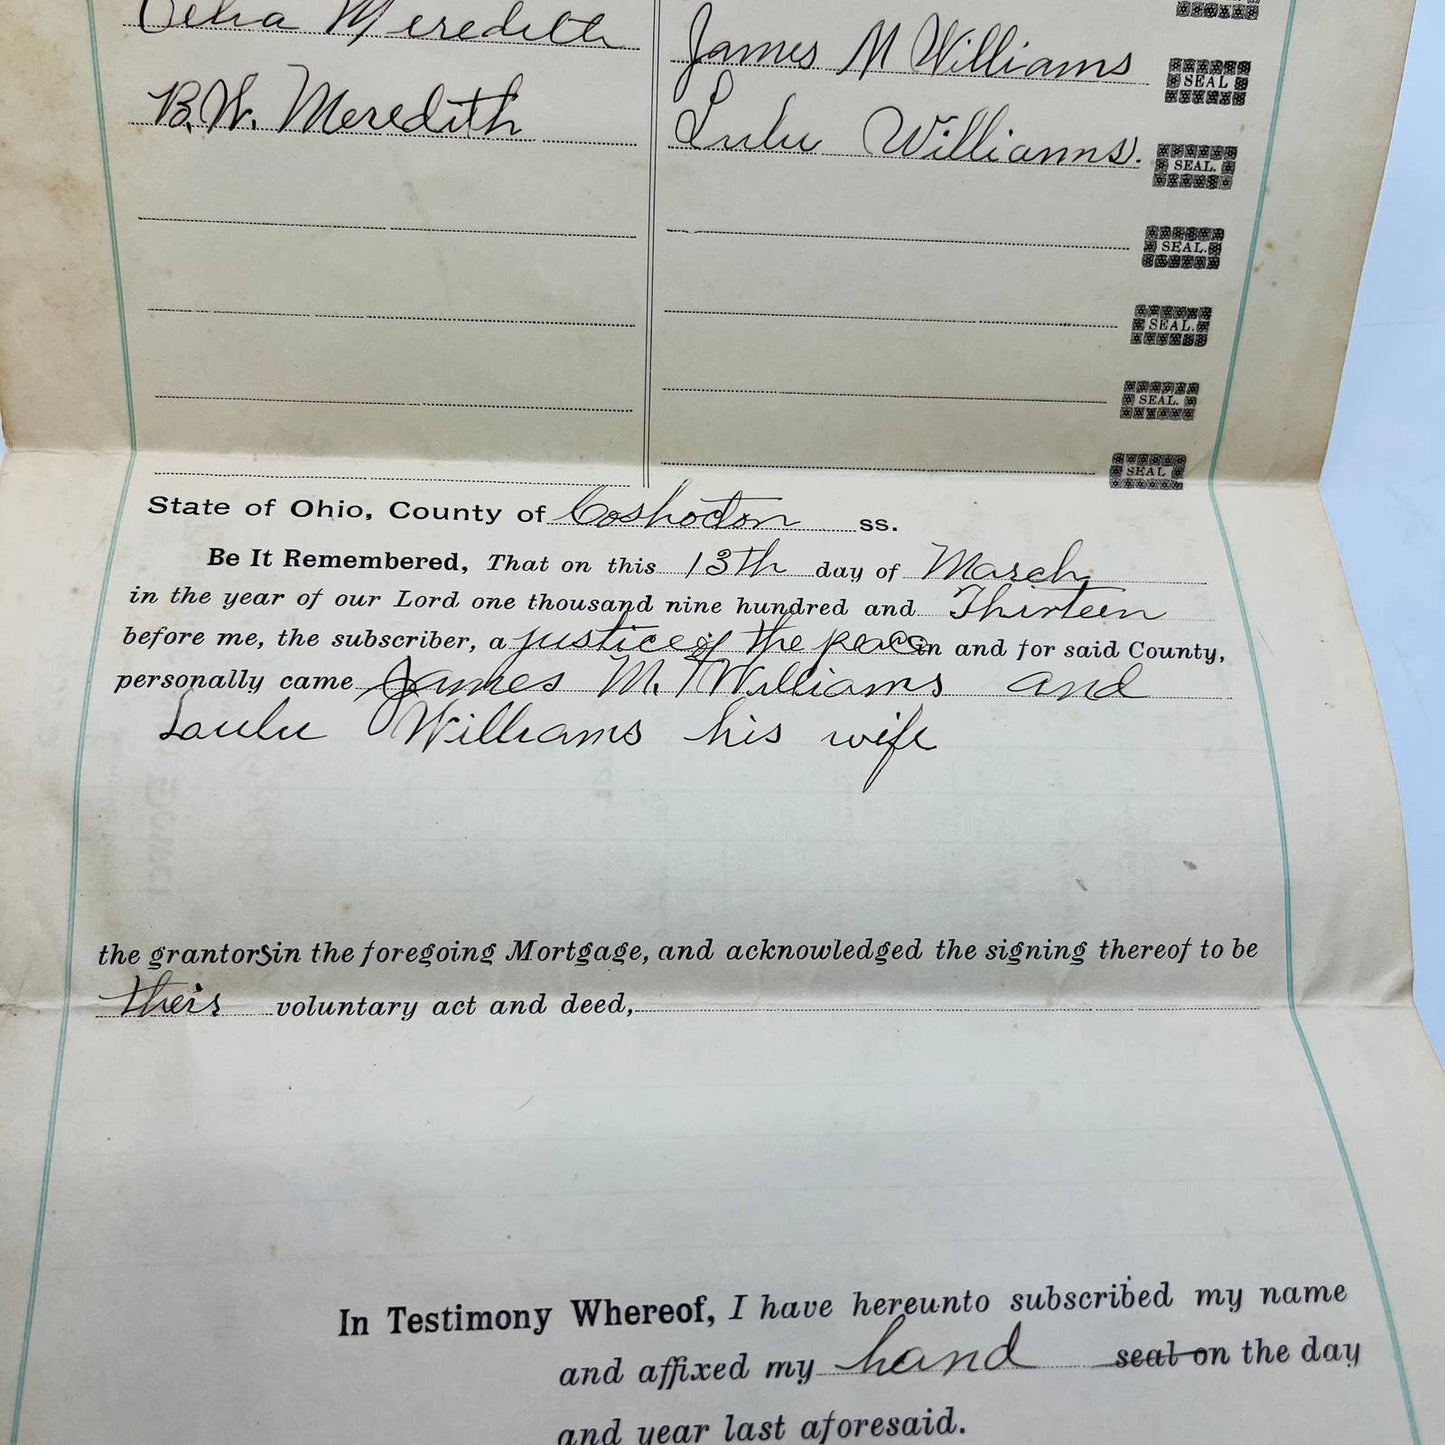 Celia Meredith
James M Williams SEAL
B.W. Meredith
Lulu Williams. SEAL.
SEAL.
SEAL.
SEAL.
SEAL
State of Ohio, County of Coshocton ss.
Be It Remembered, That on this 13th day of March
in the year of our Lord one thousand nine hundred and Thirteen
before me, the subscriber, a justice of the peace in and for said County,
personally came James M. Williams and
Loulu Williams his wife
the grantors in the foregoing Mortgage, and acknowledged the signing thereof to be
their voluntary act and deed,
In Testimony Whereof, I have hereunto subscribed my name
and affixed my hand seal on the day
and year last aforesaid.